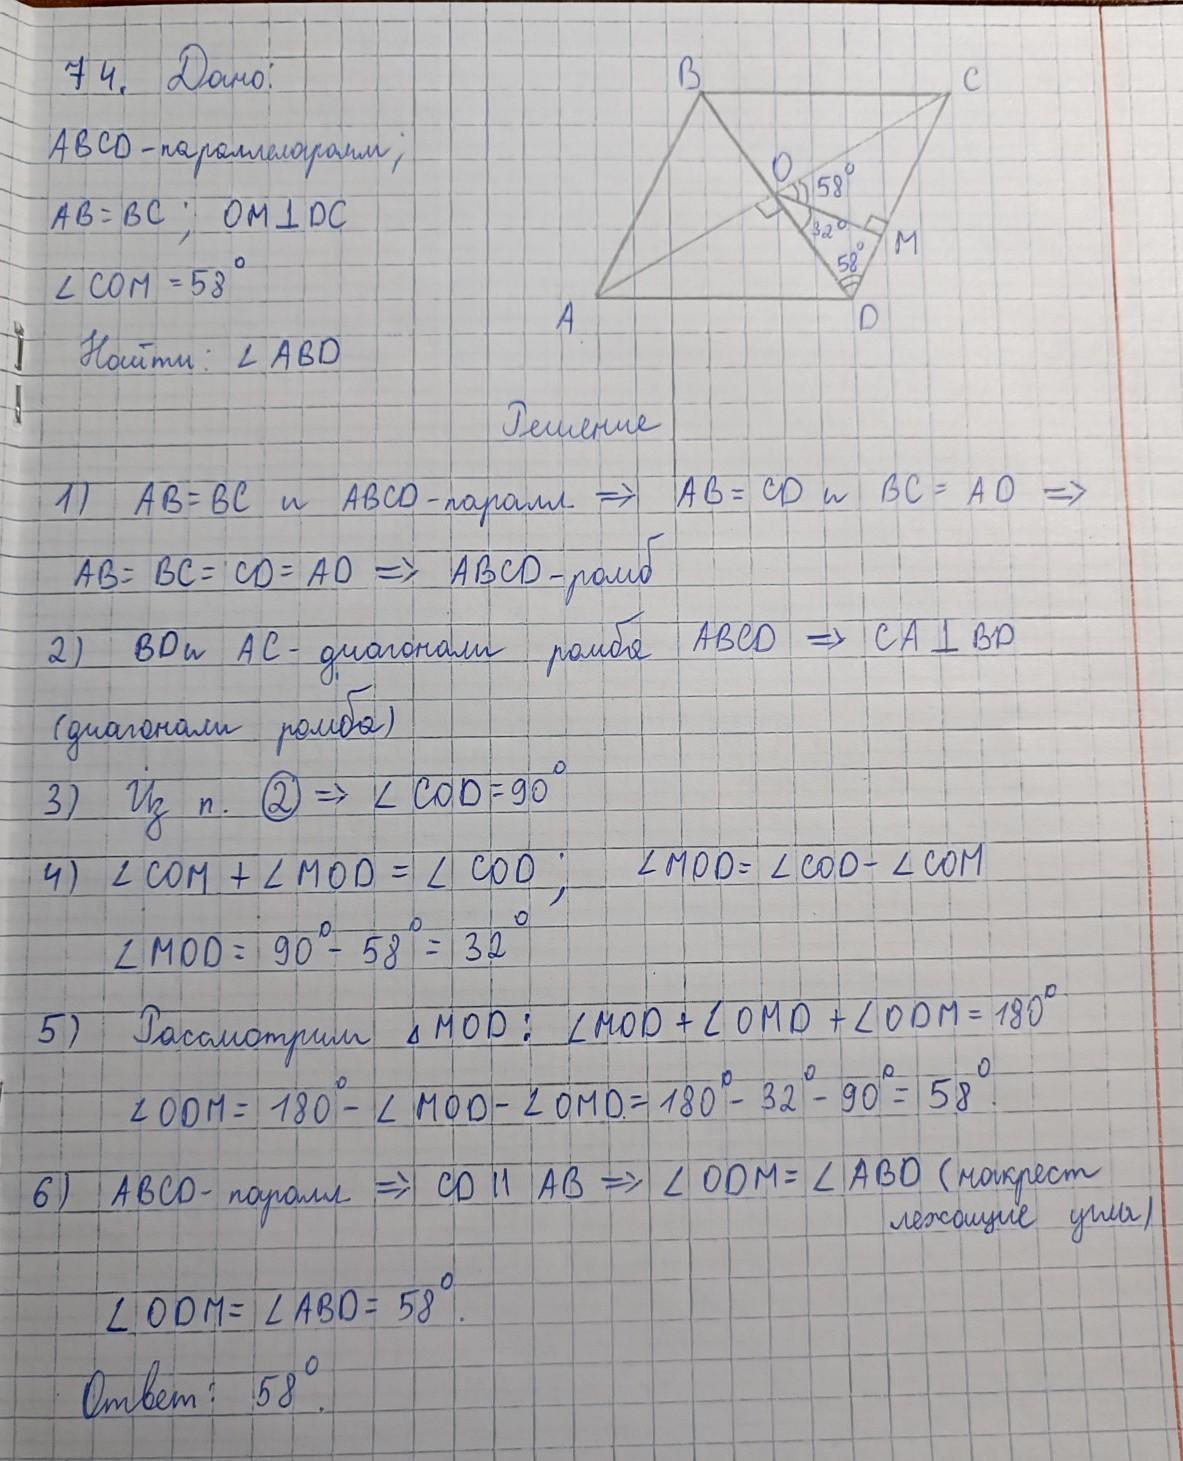 74. Дано:
ABCD-параллелограмм;
AB=BC; OM⊥DC
∠COM=58°
Найти: ∠ABD
B
C
O
58°
32°
M
58°
A
D
Решение
1) AB=BC и ABCD-паралл ⇒ AB=CD и BC=AD ⇒
AB=BC=CD=AD ⇒ ABCD-ромб
2) BD и AC-диагонали ромба ABCD ⇒ CA⊥BD
(диагонали ромба)
3) Из п. ② ⇒ ∠COD=90°
4) ∠COM+∠MOD=∠COD; ∠MOD=∠COD-∠COM
∠MOD=90°-58°=32°
5) Рассмотрим △MOD: ∠MOD+∠OMD+∠ODM=180°
∠ODM=180°-∠MOD-∠OMD=180°-32°-90°=58°.
6) ABCD-паралл ⇒ CD||AB ⇒ ∠ODM=∠ABD (накрест
лежащие углы)
∠ODM=∠ABD=58°.
Ответ: 58°.